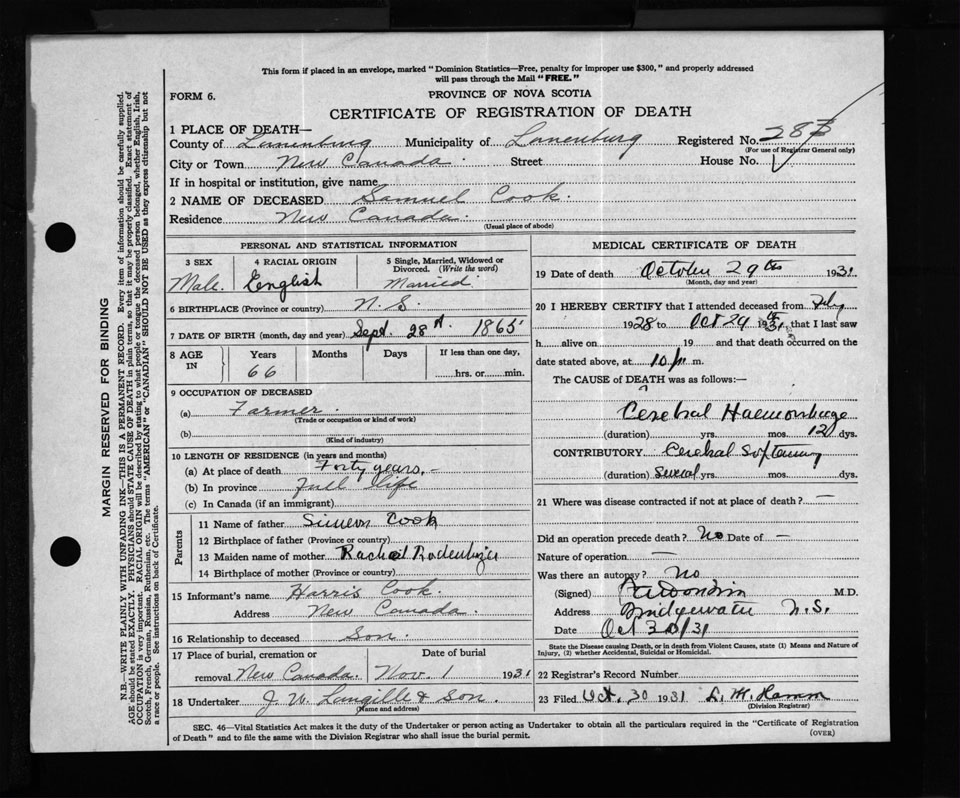 This form if placed in an envelope, marked "Dominion Statistics—Free, penalty for improper use $300," and properly addressed
will pass through the Mail "FREE."
FORM 6.
PROVINCE OF NOVA SCOTIA
CERTIFICATE OF REGISTRATION OF DEATH
1 PLACE OF DEATH—
County of Lunenburg Municipality of Lunenburg Registered No. 283
(For use of Registrar General only)
City or Town New Canada Street House No.
If in hospital or institution, give name
2 NAME OF DECEASED Samuel Cook.
Residence New Canada.
(Usual place of abode)
PERSONAL AND STATISTICAL INFORMATION
3 SEX
Male.
4 RACIAL ORIGIN
English
5 Single, Married, Widowed or
Divorced. (Write the word)
Married.
6 BIRTHPLACE (Province or country) N.S.
7 DATE OF BIRTH (month, day and year) Sept. 28th 1865
8 AGE
IN
Years Months Days If less than one day,
66 hrs. or min.
9 OCCUPATION OF DECEASED
(a) Farmer.
(Trade or occupation or kind of work)
(b)
(Kind of industry)
10 LENGTH OF RESIDENCE (in years and months)
(a) At place of death Forty years,—
(b) In province Full life
(c) In Canada (if an immigrant)
Parents
11 Name of father Simeon Cook
12 Birthplace of father (Province or country)
13 Maiden name of mother Rachel
14 Birthplace of mother (Province or country)
15 Informant's name Harris Cook.
Address New Canada.
16 Relationship to deceased Son.
17 Place of burial, cremation or Date of burial
removal New Canada. Nov. 1 1931
18 Undertaker J. W. Langille & Son.
(Name and address)
MEDICAL CERTIFICATE OF DEATH
19 Date of death October 29th 1931
(Month, day and year)
20 I HEREBY CERTIFY that I attended deceased from July
1928 to Oct 29th 1931, that I last saw
h alive on 19 and that death occurred on the
date stated above, at 10 p m.
The CAUSE of DEATH was as follows:—
Cerebral Haemorrhage
(duration) yrs. mos. 12 dys.
CONTRIBUTORY Cerebral Softening
(duration) Several yrs. mos. dys.
21 Where was disease contracted if not at place of death? —
Did an operation precede death? No Date of —
Nature of operation —
Was there an autopsy? No
(Signed) M.D.
Address Bridgewater N.S.
Date Oct 30/31
State the Disease causing Death, or in death from Violent Causes, state (1) Means and Nature of
Injury, (2) whether Accidental, Suicidal or Homicidal.
22 Registrar's Record Number
23 Filed Oct. 30 1931
(Division Registrar)
SEC. 46—Vital Statistics Act makes it the duty of the Undertaker or person acting as Undertaker to obtain all the particulars required in the "Certificate of Registration
of Death" and to file the same with the Division Registrar who shall issue the burial permit.
(OVER)
MARGIN RESERVED FOR BINDING
N.B.—WRITE PLAINLY WITH UNFADING INK—THIS IS A PERMANENT RECORD. Every item of information should be carefully supplied.
AGE should be stated EXACTLY. PHYSICIANS should STATE CAUSE OF DEATH in plain terms, so that it may be properly classified. Exact statement of
OCCUPATION is very important. RACIAL ORIGIN will be described by stating to what people or tongue the deceased person belonged, whether English, Irish,
Scotch, French, German, Russian, Ruthenian, etc. The terms "AMERICAN" or "CANADIAN" SHOULD NOT BE USED as they express citizenship but not
a race or people. See instructions on back of Certificate.